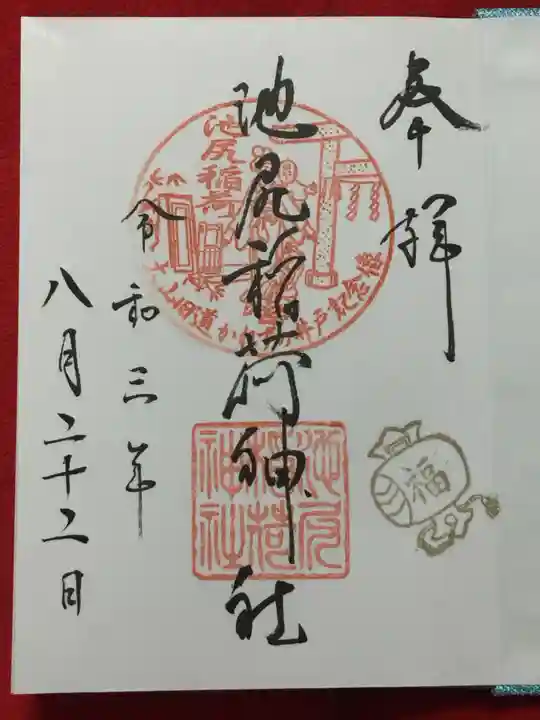 奉拝
池尻稲荷神社
令和三年
八月二十二日
池尻稲荷
大山旧道かごめかごめ井戸記念碑
池尻
稲荷
神社
福